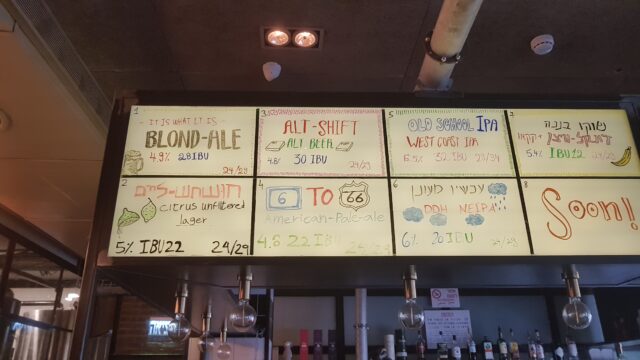 1
IT IS WHAT IT IS
BLOND-ALE
4.9% 28IBU
24/29
3
ALT-SHIFT
ALT BEER
4.8% 30 IBU
24/29
5
OLD SCHOOL IPA
WEST COAST IPA
6.5% 52 IBU 29/34
7
שוקו בננה
5.4% IBU12
2
citrus unfiltered
lager
5% IBU22 24/29
4
6 TO 66
American-Pale-ale
4.6 22 IBU 25/29
6
עכשיו מעונן
DDH NEIPA
6% 30 IBU
8
Soon!